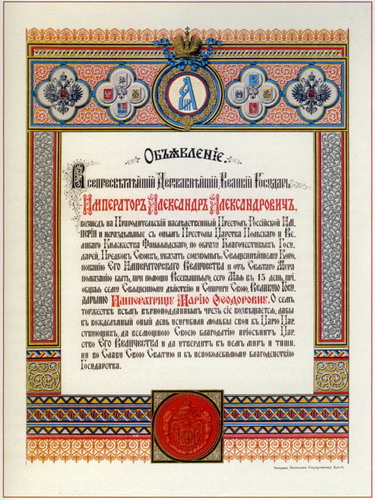 Объявленіе.
Всепресвѣтлѣйшій Державнѣйшій Великій Государь,
Императоръ Александръ Александровичъ,
восшедъ на Прародительскій наслѣдственный Престолъ Россійской Им-
періи и нераздѣльныхъ съ онымъ Престоловъ Царства Польскаго и Ве-
ликаго Княжества Финляндскаго, по образу Благочестивыхъ Госу-
дарей, Предковъ Своихъ, указать соизволилъ: Священнѣйшему Коро-
нованію Его Императорскаго Величества и отъ Святаго Мѵра
помазанію быть, при помощи Всевышняго, сего Мая въ 15 день, прі-
общая сему Священному дѣйствію и Супругу Свою, Великую Госу-
дарыню Императрицу Марію Ѳеодоровну. О семъ
торжествѣ всѣмъ вѣрноподданнымъ чрезъ сіе возвѣщается, дабы
въ вожделѣнный оный день усугубили мольбы свои къ Царю Цар-
ствующихъ, да всемощною Своею благодатію пріосѣнитъ Цар-
ство Его Величества и да утвердитъ въ немъ миръ и тиши-
ну во Славу Свою Святую и къ непоколебимому благоденствію
Государства.